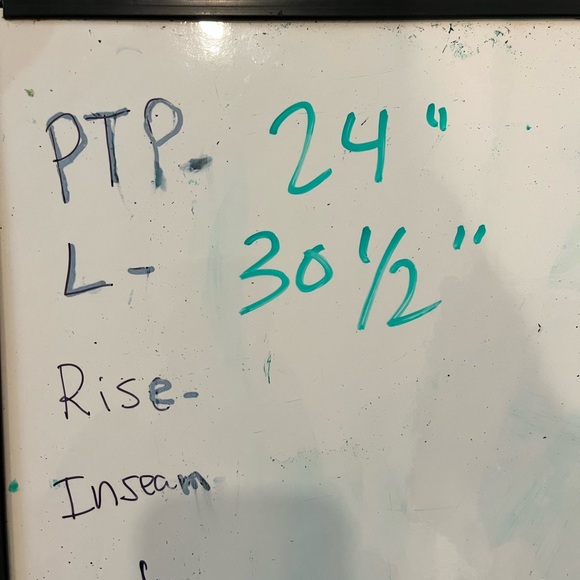 PTP- 24"
L- 30 1/2"
Rise-
Inseam